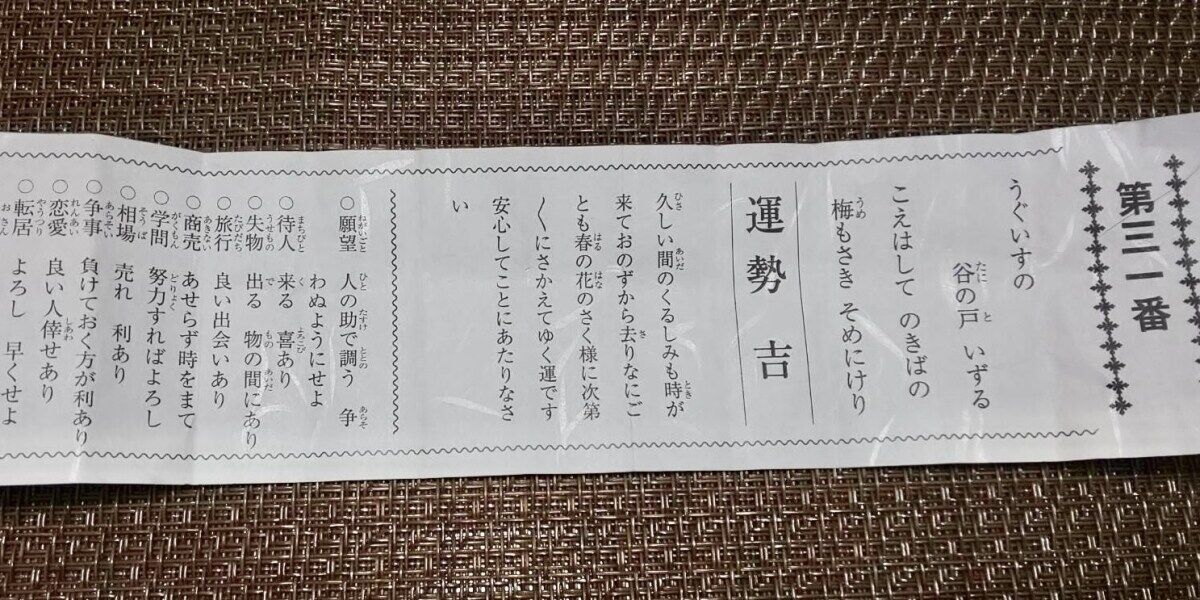 第三一番
うぐいすの
谷の戸 いずる
こえはして のきばの
梅もさき そめにけり
運勢 吉
久しい間のくるしみも時が
来ておのずから去りなにご
とも春の花のさく様に次第
〱にさかえてゆく運です
安心してことにあたりなさ
い
○願望 人の助で調う 争
わぬようにせよ
○待人 来る 喜あり
○失物 出る 物の間にあり
○旅行 良い出会いあり
○商売 あせらず時をまて
○学問 努力すればよろし
○相場 売れ 利あり
○争事 負けておく方が利あり
○恋愛 良い人倖せあり
○転居 よろし 早くせよ